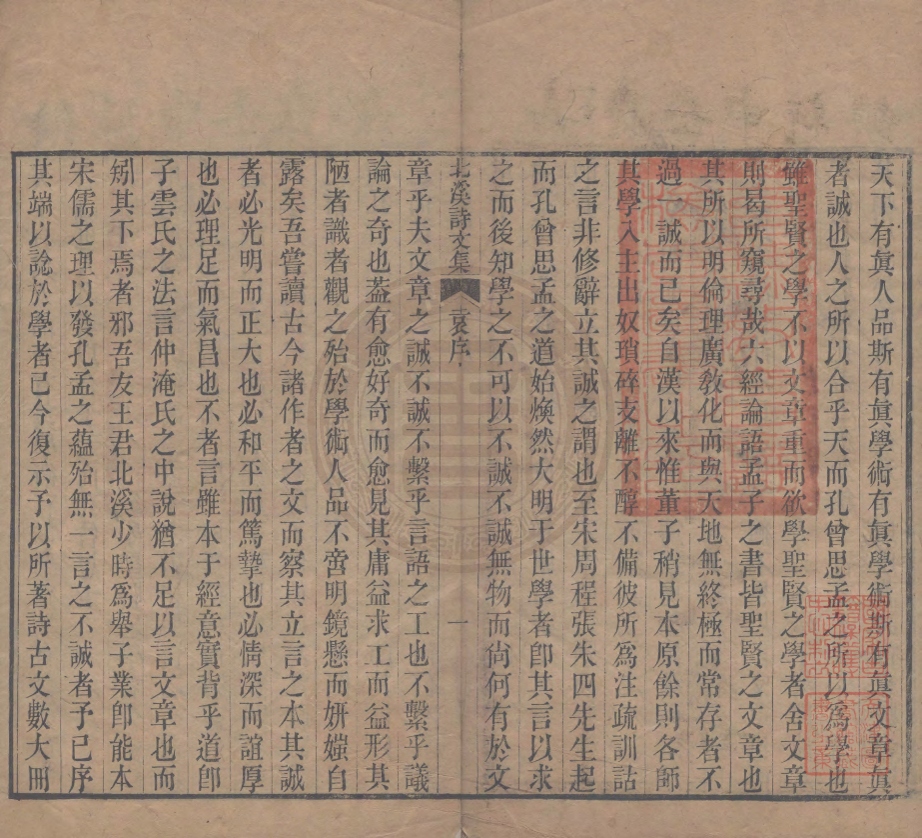 天下有眞人品斯有眞學術有眞學術斯有眞文章眞
者誠也人之所以合乎天而孔曾思孟之所以爲學也
雖聖賢之學不以文章重而欲學聖賢之學者舍文章
則曷所窺尋哉六經論語孟子之書皆聖賢之文章也
其所以明倫理廣敎化而與天地無終極而常存者不
過一誠而已矣自漢以來惟董子稍見本原餘則各師
其學入主出奴瑣碎支離不醇不備彼所爲注疏訓詁
之言非修辭立其誠之謂也至宋周程張朱四先生起
而孔曾思孟之道始煥然大明于世學者卽其言以求
之而後知學之不可以不誠不誠無物而尙何有於文
北溪詩文集 序 一
章乎夫文章之誠不誠不繫乎言語之工也不繫乎議
論之奇也葢有愈好奇而愈見其庸益求工而益形其
陋者識者觀之殆於學術人品不啻明鏡懸而妍媸自
露矣吾嘗讀古今諸作者之文而察其立言之本其誠
者必光明而正大也必和平而篤摯也必情深而誼厚
也必理足而氣昌也不者言雖本于經意實背乎道卽
子雲氏之法言仲淹氏之中說猶不足以言文章也而
矧其下焉者邪吾友王君北溪少時爲舉子業卽能本
宋儒之理以發孔孟之蘊殆無一言之不誠者予已序
其端以諗於學者已今復示予以所著詩古文數大冊